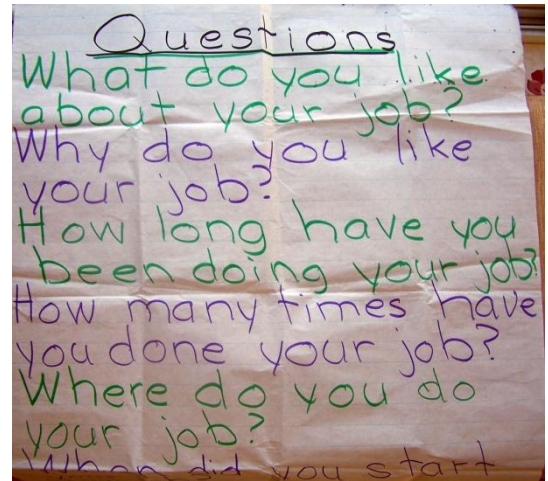 Questions
What do you like
about your job?
Why do you like
your job?
How long have you
been doing your job?
How many times have
you done your job?
Where do you do
your job?
When did you start